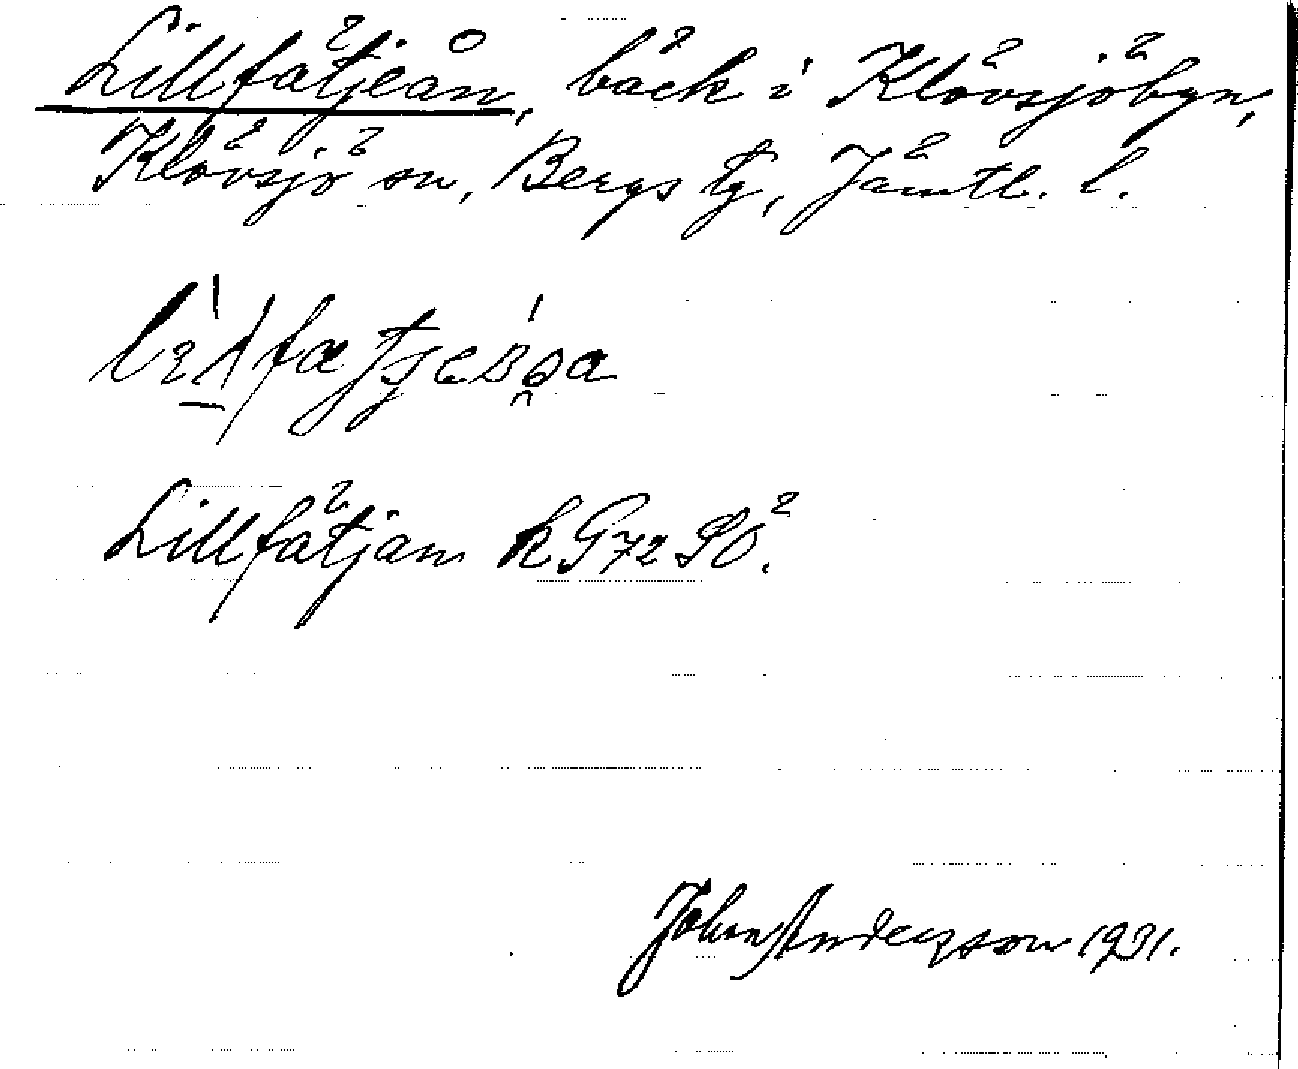 Lillfätjeån, bäck i Klövsjöbyn,
Klövsjö sn, Bergs tg, Jämtl. l.
Lillfätjam kG72SO².
John Andersson 1931.